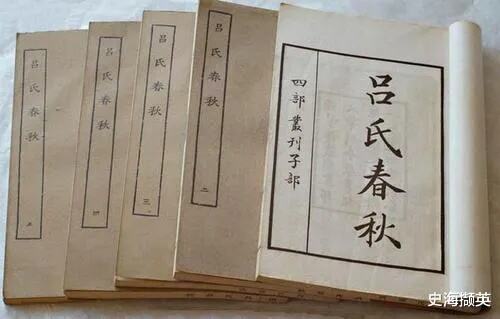 吕氏春秋
四部叢刊子部
吕氏春秋
二
吕氏春秋
三
吕氏春秋
四
吕氏春秋
五
史海撷英